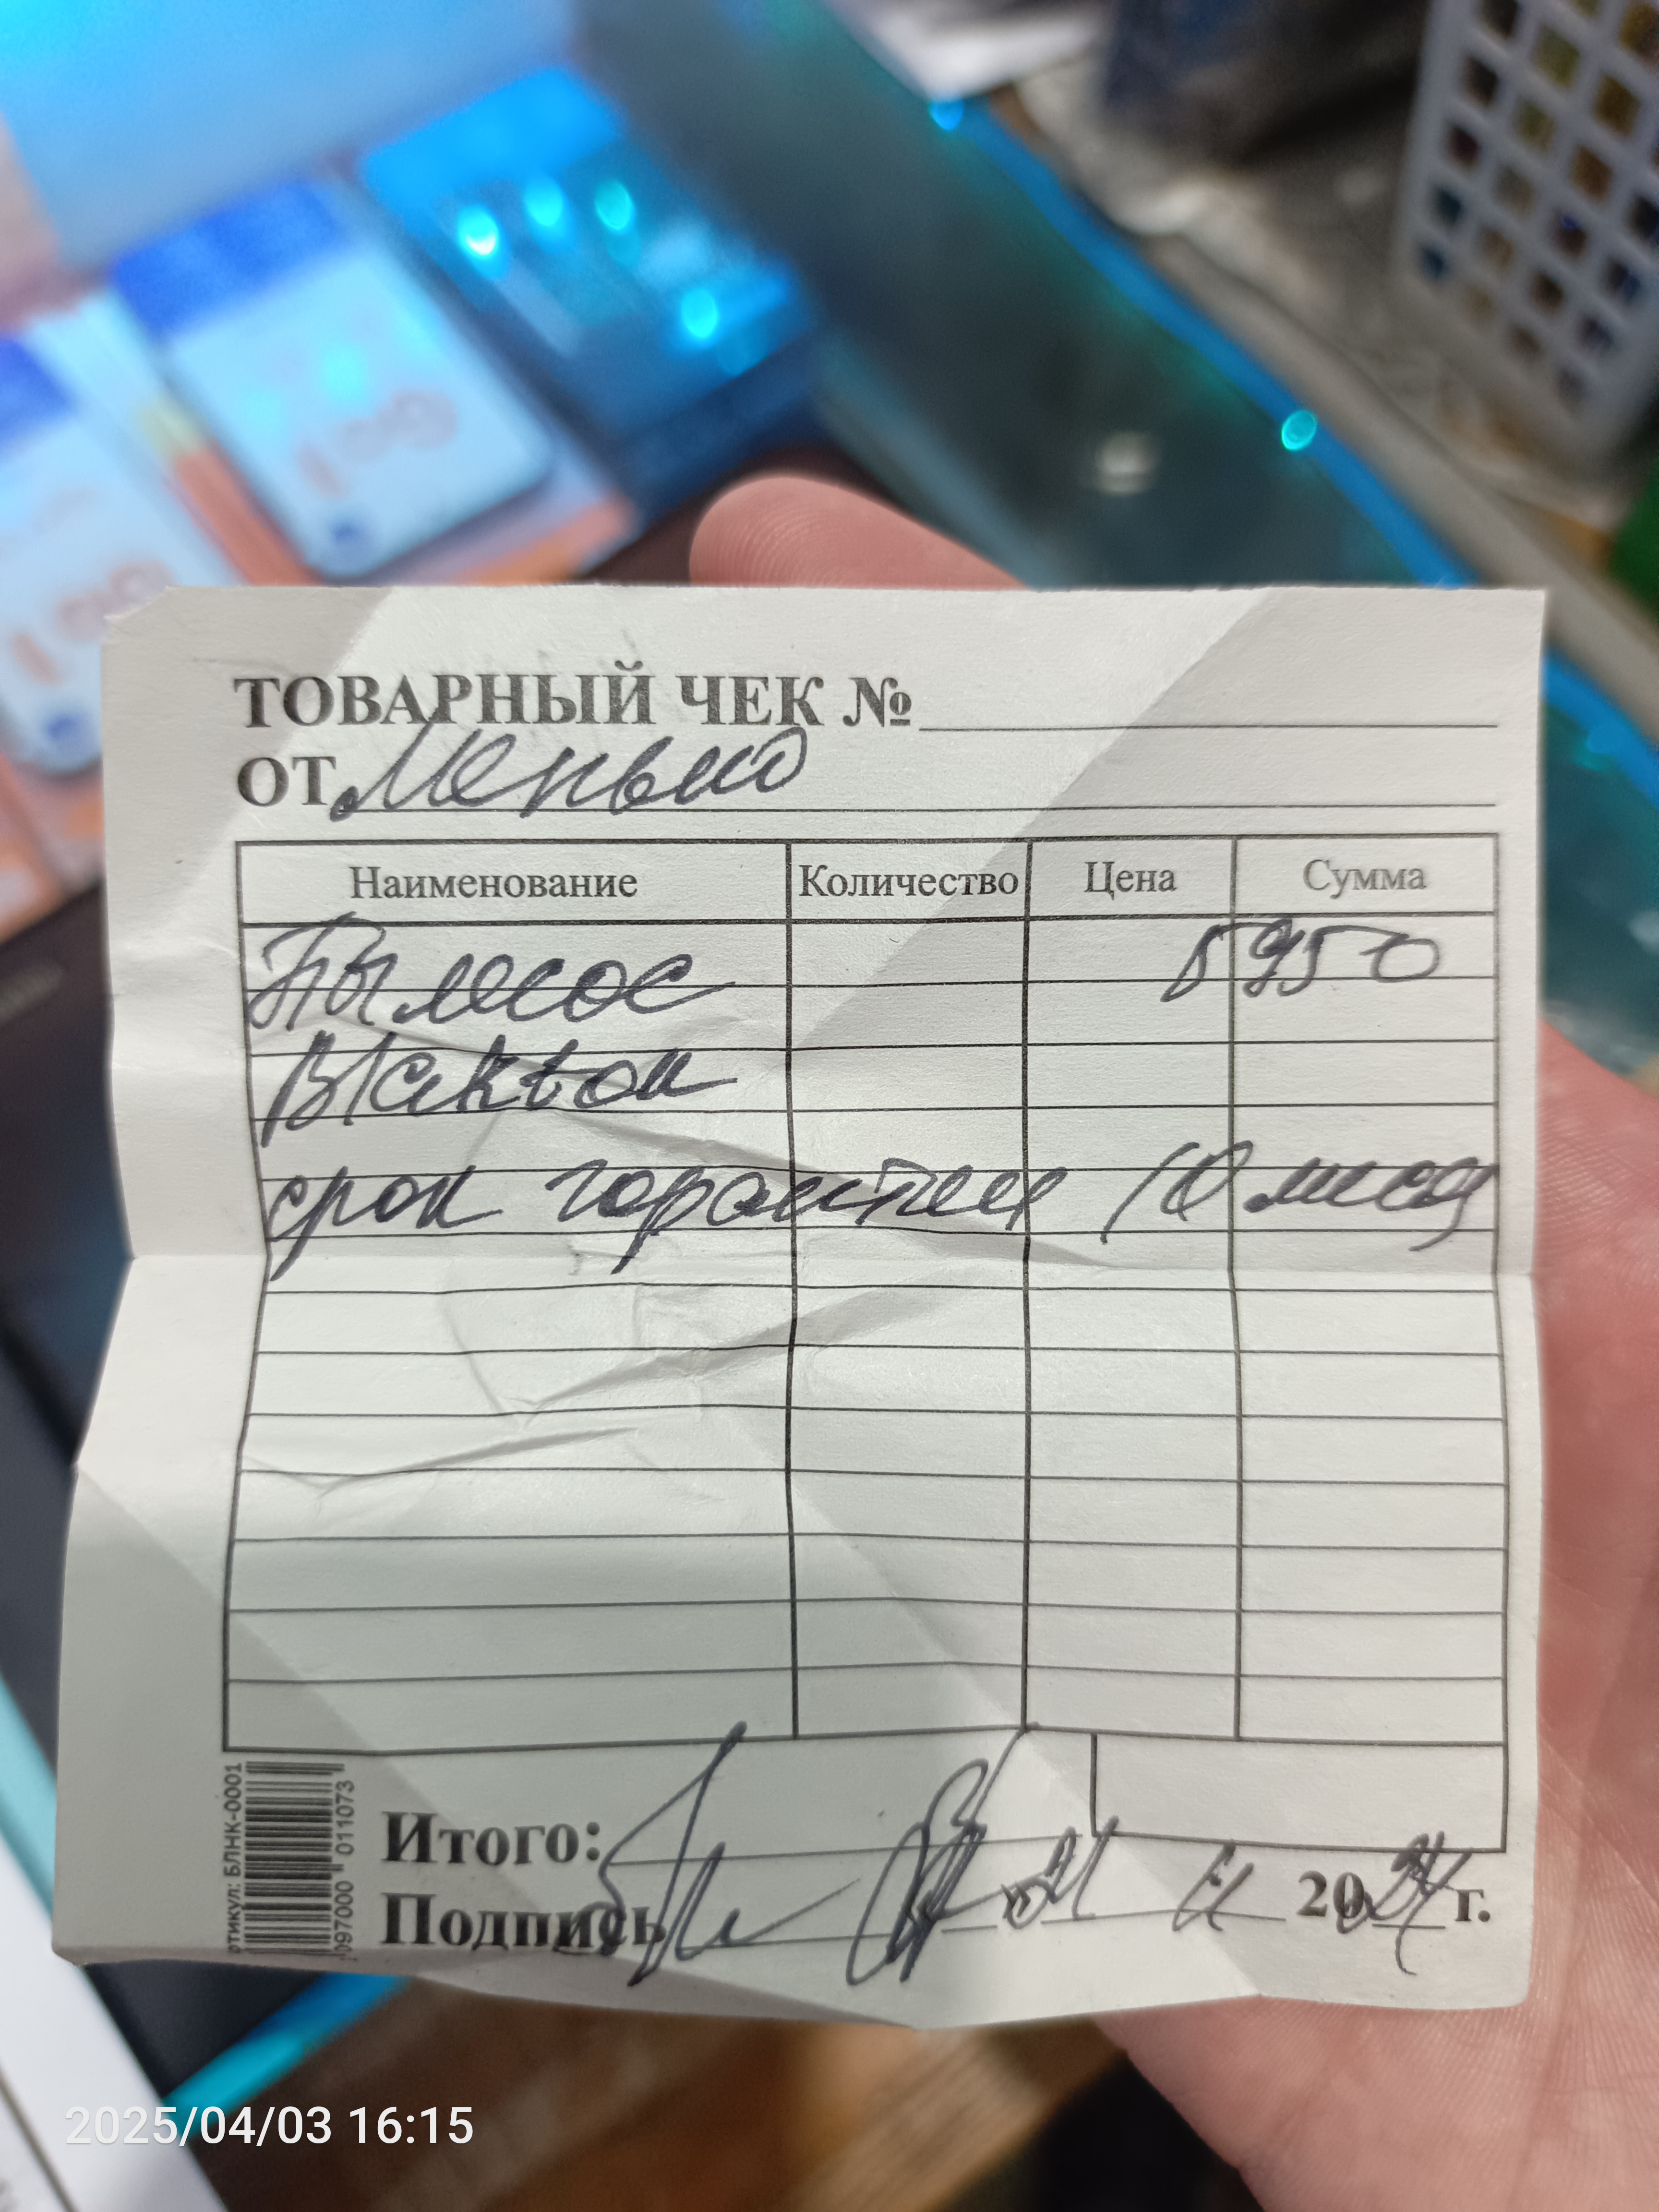 ТОВАРНЫЙ ЧЕК №
ОТ
Наименование Количество Цена Сумма
Пылесос 5950
срок гарантии 10 меся
Итого:
Подпись 2024 г.
артикул: БЛНК-0001
097000 011073
2025/04/03 16:15